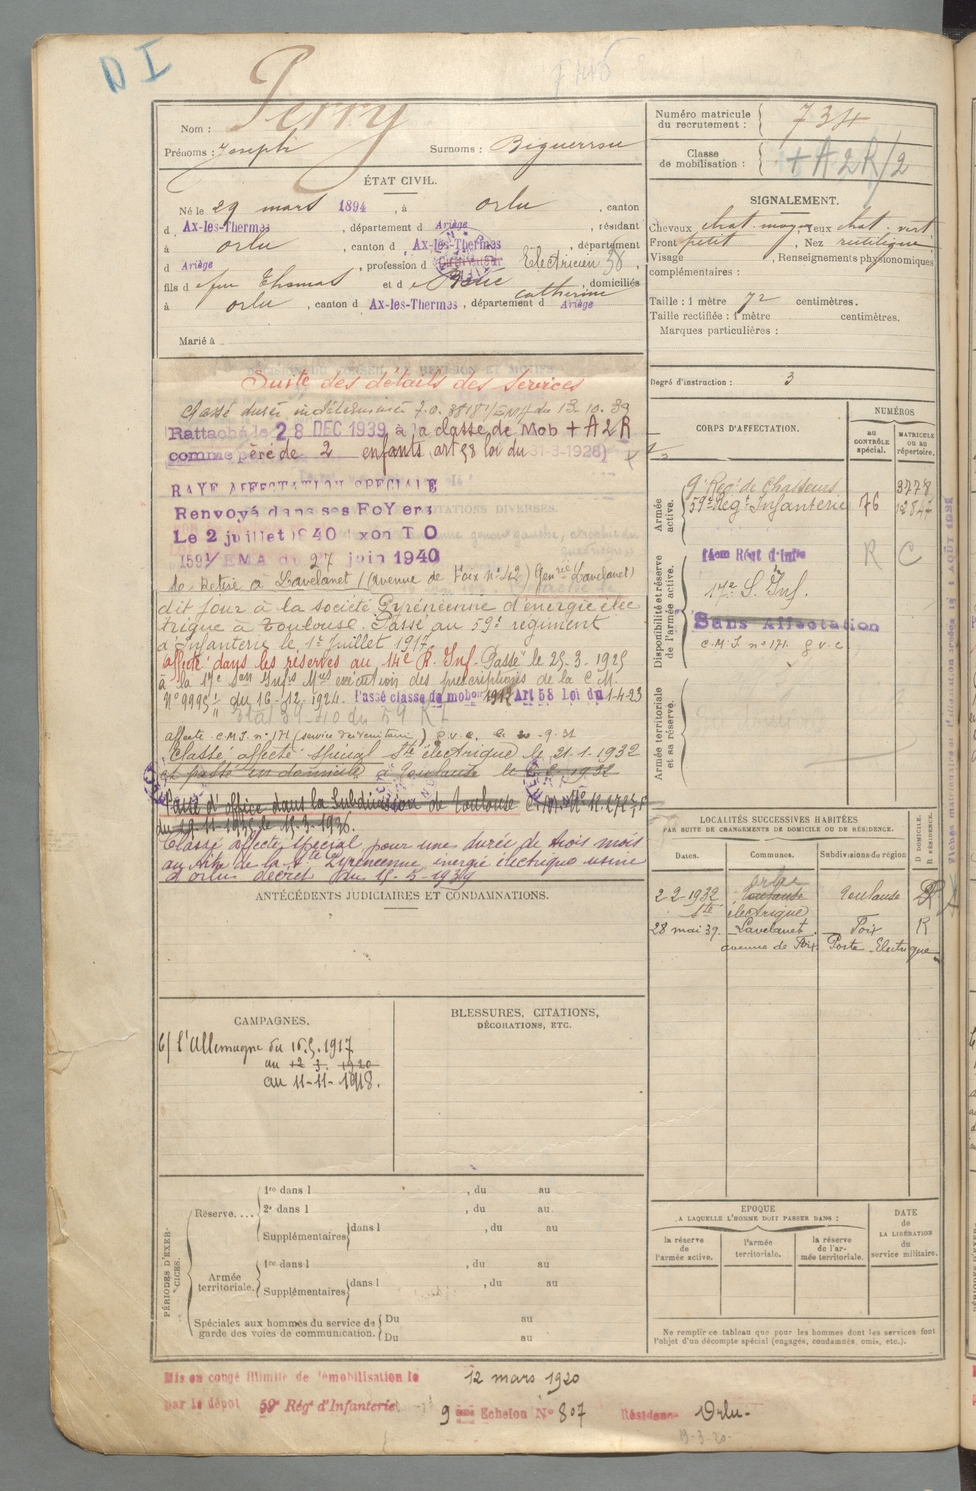 D I
Nom : Perry
Prénoms : Joseph Surnoms : Biguerrou
ÉTAT CIVIL.
Né le 29 mars 1894, à Orlu, canton
d Ax-les-Thermes, département d Ariège, résidant
à Orlu, canton d Ax-les-Thermes, département
d Ariège, profession d Electricien 38,
fils d feu Thomas et d e Catherine, domiciliés
à Orlu, canton d Ax-les-Thermes, département d Ariège
Marié à
Suite des détails des services
Classé durée indéterminée J.O. du 13.10.39
Rattaché le 28 DEC 1939 à la classe de Mob + A2R
comme père de 2 enfants (art 58 loi du 31-3-1928)
RAYE AFFECTATION SPECIALE
Renvoyé dans ses Foyers
Le 2 juillet 1940 T O
1591/EMA du 27 juin 1940
Se retire à Lavelanet (avenue de Foix n° 42) Lavelanet)
dit jour à la société Pyrénéenne d'énergie élec
trique à Toulouse. Passé au 59e régiment
d'Infanterie le 1er Juillet 1917.
affecté dans les réserves au 14e R. Inf. Passé le 25-3-1925
à la 17e Son exécution des prescriptions de la C M.
N° 9995 du 16-12-1924. Passé classe de mobon 1912 Art 58 Loi du 1-4-23
affecté C.M.J. n° 171 G.V.C. 9-31
Classé affecté spécial Sté électrique le 21-1-1932
et passé en domicile à Toulouse le 1932
Passé d'office dans la Subdivision de Toulouse
du 29-11-1935 le 15-3-1936.
Classé affecté spécial pour une durée de trois mois
au titre de la Sté Pyrénéenne énergie électrique usine
d'orlu décret du
ANTÉCÉDENTS JUDICIAIRES ET CONDAMNATIONS.
CAMPAGNES.
C/ l'Allemagne du 16.5.1917
au 12 3. 1920
au 11-11-1918.
BLESSURES, CITATIONS,
DÉCORATIONS, ETC.
PÉRIODES D'EXERCICES.
Réserve.... 1re dans l , du au
2e dans l , du au
Supplémentaires dans l , du au
Armée territoriale. 1re dans l , du au
Supplémentaires dans l , du au
Spéciales aux hommes du service de Du au
garde des voies de communication. Du au
Numéro matricule
du recrutement : 734
Classe
de mobilisation : + A2R/2
SIGNALEMENT.
Cheveux chat. moy. Yeux chat. vert
Front petit, Nez rectiligne
Visage , Renseignements physionomiques
complémentaires :
Taille : 1 mètre 72 centimètres.
Taille rectifiée : 1 mètre centimètres.
Marques particulières :
Degré d'instruction : 3
CORPS D'AFFECTATION.
NUMÉROS
au
CONTRÔLE
spécial.
MATRICULE
OU au
répertoire.
Armée
active.
9e Régt de Chasseurs 3778
59e Régt Infanterie 76 12847
Disponibilité et réserve
de l'armée active.
14em Régt d'Infie R C
17e S. Inf.
Sans Affectation
C.M.J. n° 171. G.V.C
Armée territoriale
et sa réserve.
LOCALITÉS SUCCESSIVES HABITÉES
PAR SUITE DE CHANGEMENTS DE DOMICILE OU DE RÉSIDENCE.
Dates. Communes. Subdivisions de région D DOMICILE. R RÉSIDENCE.
Orlu
2-2-1932 Toulouse Toulouse R
Sté électrique
28 mai 37. Lavelanet. Foix R
avenue de Foix. Poste Electrique
EPOQUE
A LAQUELLE L'HOMME DOIT PASSER DANS :
la réserve
de
l'armée active.
l'armée
territoriale.
la réserve
de l'ar-
mée territoriale.
DATE
de
LA LIBÉRATION
du
service militaire.
Ne remplir ce tableau que pour les hommes dont les services font
l'objet d'un décompte spécial (engagés, condamnés, omis, etc.).
Mis en congé illimité de démobilisation le 12 mars 1920
par le dépôt 59e Régt d'Infanterie 9 ème Echelon N° 807 Résidence Orlu-
19-3-20-